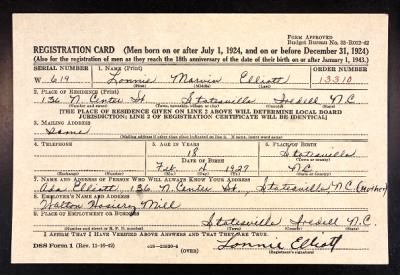 Form Approved
Budget Bureau No. 33-R012-42
REGISTRATION CARD (Men born on or after July 1, 1924, and on or before December 31, 1924)
(Also for the registration of men as they reach the 18th anniversary of the date of their birth on or after January 1, 1943.)
SERIAL NUMBER 1. NAME (Print) ORDER NUMBER
W 619 Lonnie Marvin Elliott 13310
(First) (Middle) (Last)
2. PLACE OF RESIDENCE (Print)
136 N. Center St. Statesville Iredell N.C.
[THE PLACE OF RESIDENCE GIVEN ON LINE 2 ABOVE WILL DETERMINE LOCAL BOARD
JURISDICTION; LINE 2 OF REGISTRATION CERTIFICATE WILL BE IDENTICAL]
3. MAILING ADDRESS
Same
[Mailing address if other than place indicated on line 2. If same, insert word same]
4. TELEPHONE 5. AGE IN YEARS 6. PLACE OF BIRTH
18 Statesville
DATE OF BIRTH
Feb. 1927 N.C.
7. NAME AND ADDRESS OF PERSON WHO WILL ALWAYS KNOW YOUR ADDRESS
Ada Elliott, 136 N. Center St., Statesville N.C. (Mother)
8. EMPLOYER'S NAME AND ADDRESS
Walton Hosiery Mill
9. PLACE OF EMPLOYMENT OR BUSINESS
Statesville Iredell N.C.
I AFFIRM THAT I HAVE VERIFIED ABOVE ANSWERS AND THAT THEY ARE TRUE.
DSS Form 1 (Rev. 11-16-42) (OVER) Lonnie Elliott
(Registrant's signature)